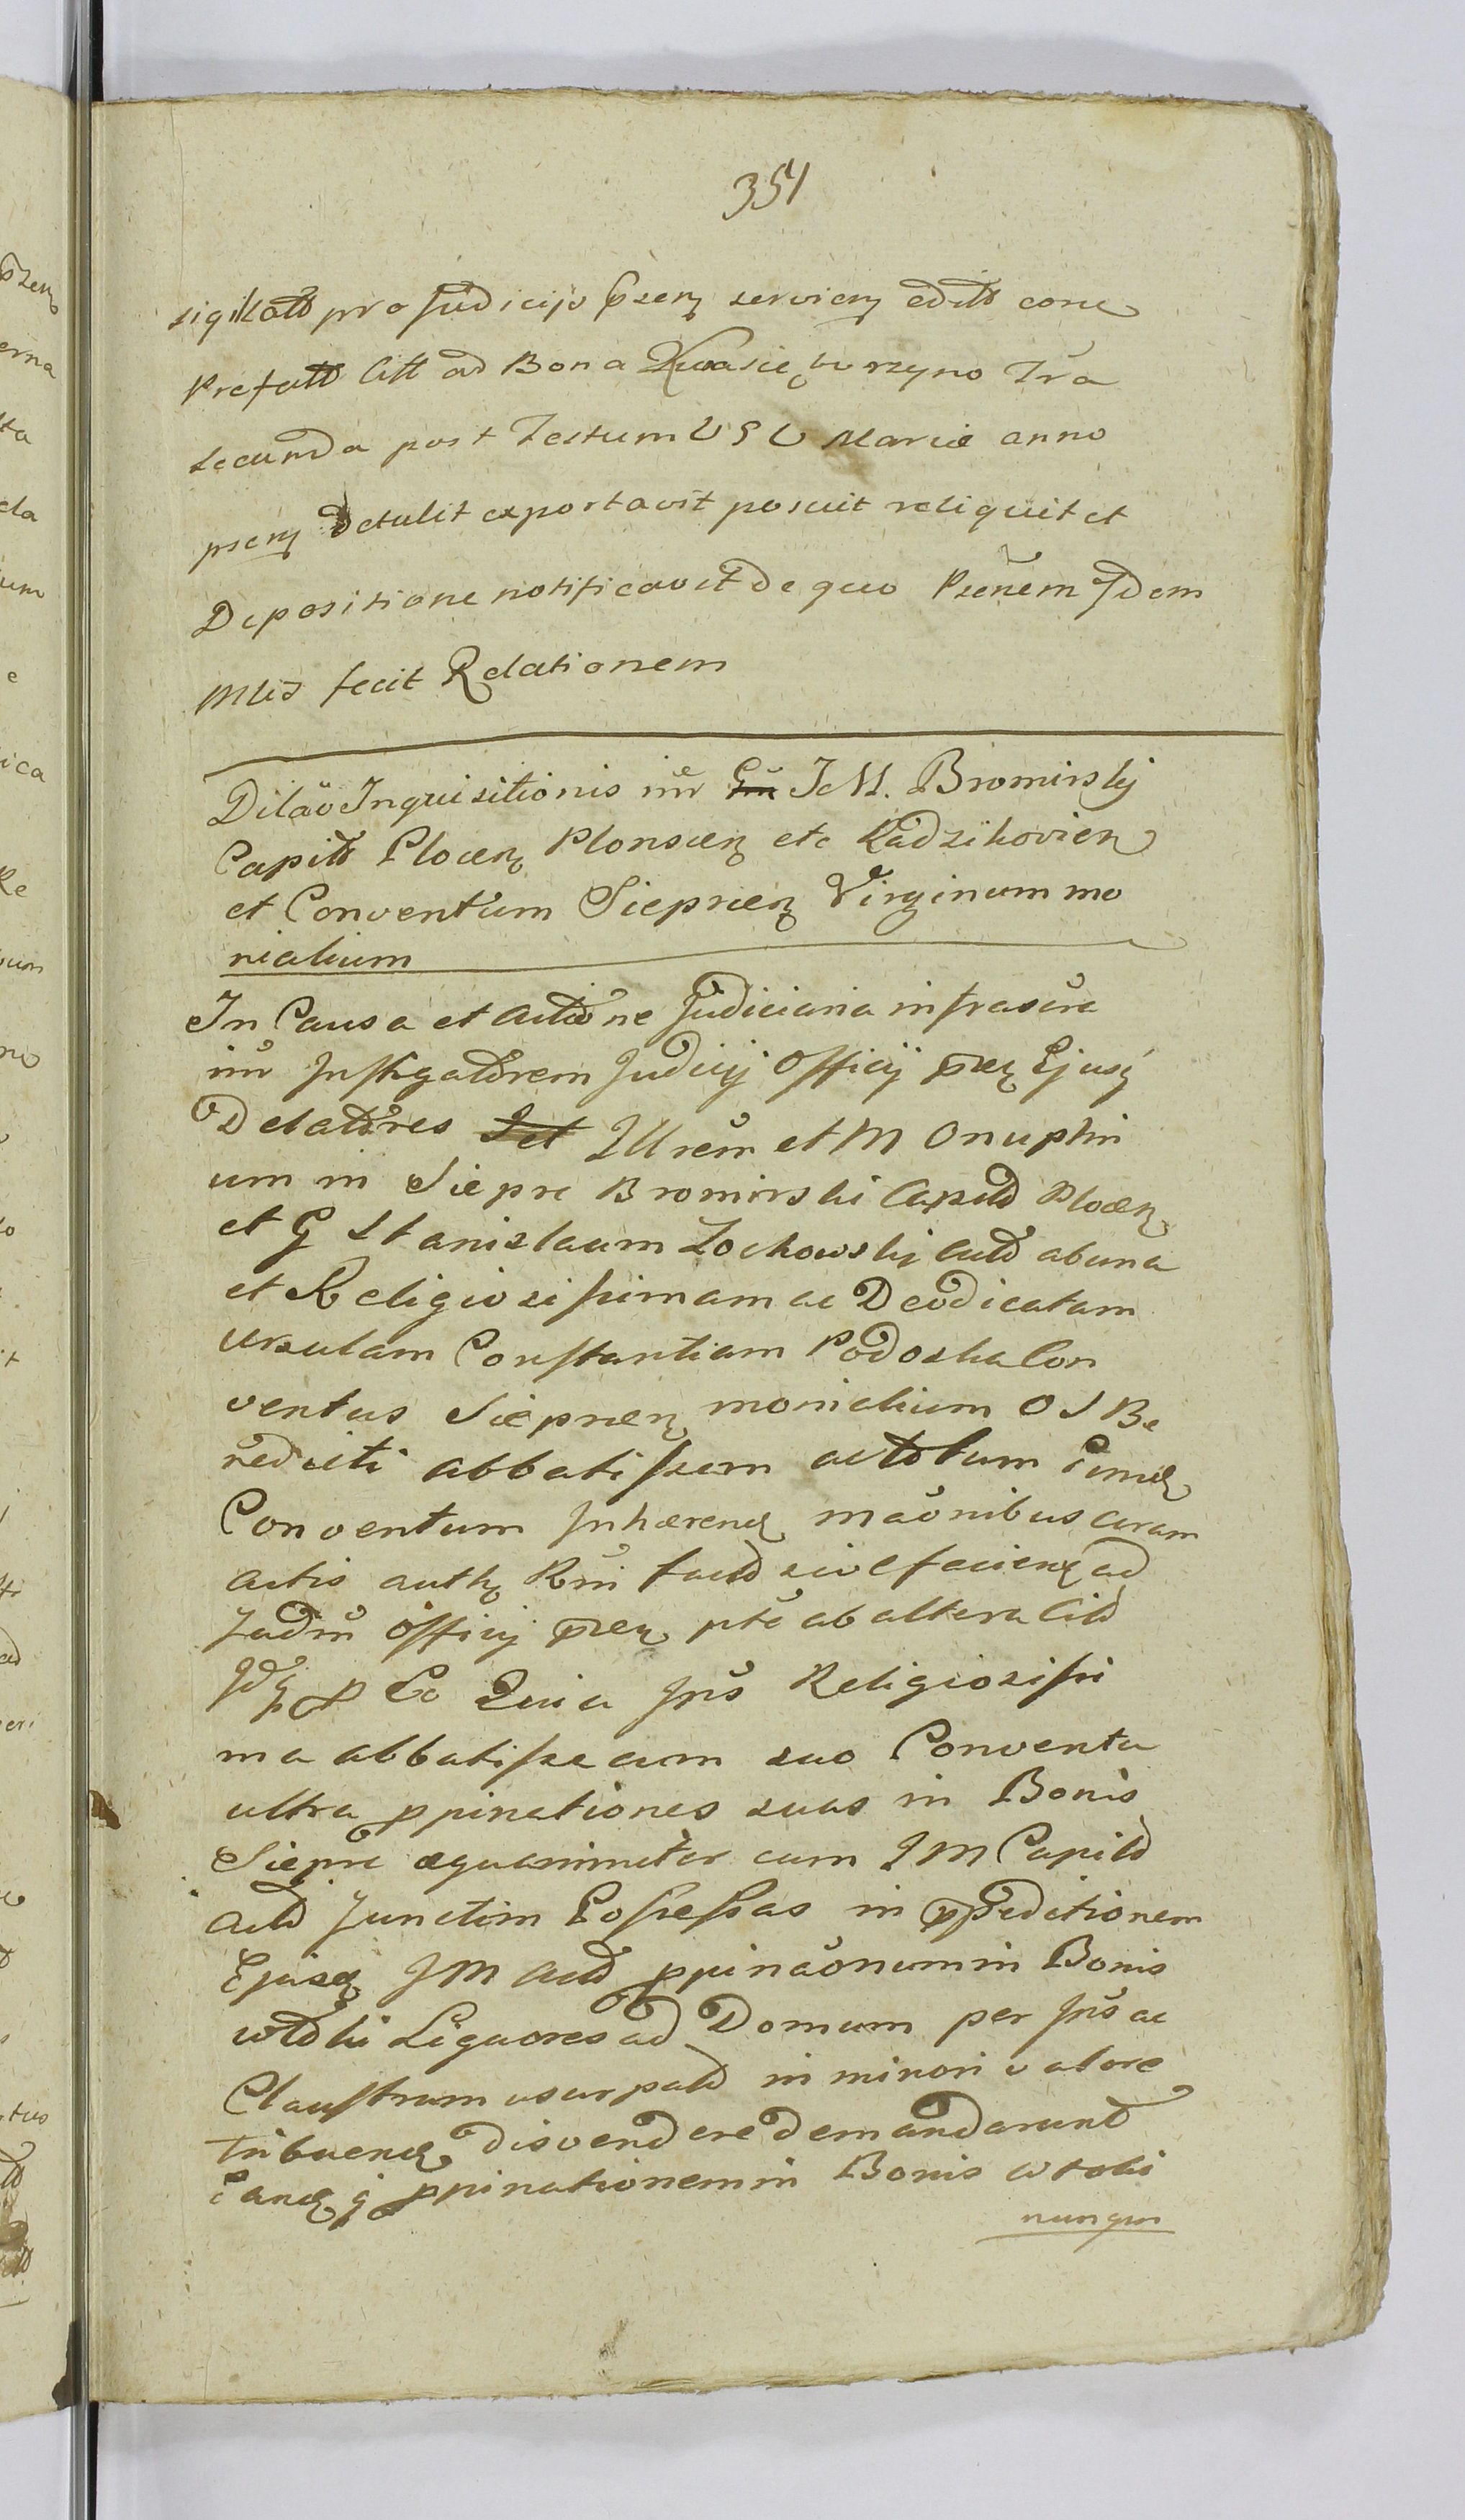 351
sigillatt pro Judicijs psen servien editt conc
Prefatt litt ad Bona Kwasieborzyno Fra
secunda post Festum V S C Mariæ anno
psen detulit exportavit posuit reliquit et
Depositione notificavit de quo Psenem Idem
Mlis fecit Relationem
Dilao Inquisitionis inr J M. Bromirskij
Capitt Plocen Plonscen etc Radzikovien
et Conventum Sieprcen Virginum mo
nialium
In Causa et actione Judiciaria infrascra
inr Instigatorem Judicij Officij psen Ejusq
Delatores Illrem et M Onuphri
um in Sieprc Bromirski Capitt Plocen
et G Stanislaum Zochowskij act ab una
et Religiosissimam ac Deodicatam
Ursulam Constantiam Podoska Con
ventus Sieprcen monialium O S Be
nedicti abbatissam ac totum Eund
Conventum Inhærend maonibus coram
actis auth Rni fact sive faciend ad
Judm Officij psen pte ab altera Citt
Idq p Eo Quia Ips Religiosissi
ma abbatissa cum suo Conventu
ultra ppinationes suas in Bonis
Sieprc æquanimiter cum J M Capitt
act Junctim Possessas in ppeditionem
Ejusd J M act ppinaonum in Bonis
wtolii Liquores ad Domum per Ips ac
Claustrum usurpatt in minori valore
tribuend disvendere demandarunt
Eand q ppinationem in Bonis wtolii
nunqm